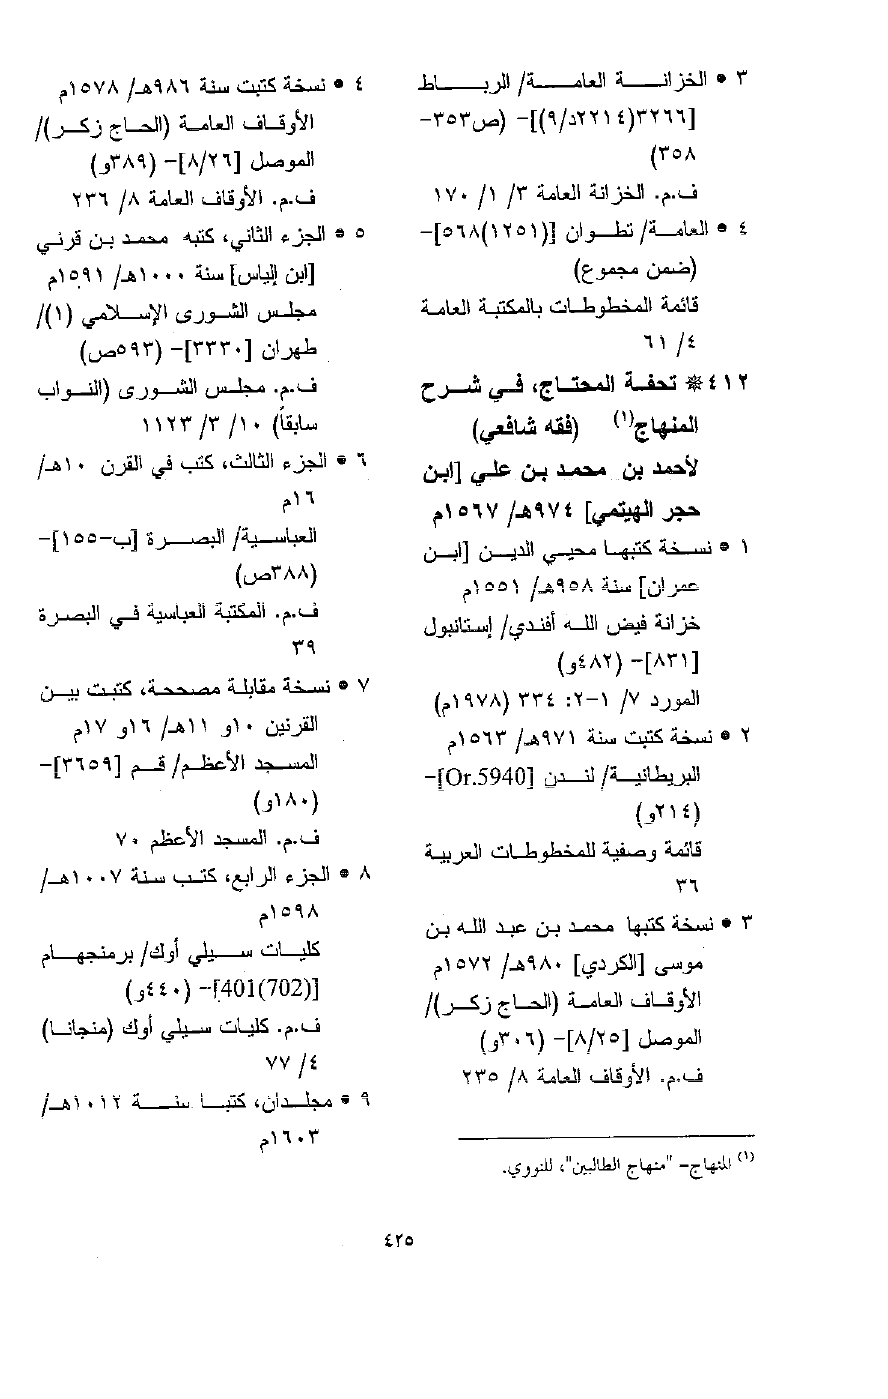 ٣ • الخزانـــة العامـــة/ الربـــاط
[٣٢٦٦(٢٢١٤د/٩)]- (ص٣٥٣-
٣٥٨)
ف.م. الخزانة العامة ٣/ ١/ ١٧٠
٤ • العامـة/ تطـوان [(١٢٥١)٥٦٨]-
(ضمن مجموع)
قائمة المخطوطات بالمكتبة العامة
٤/ ٦١
٤١٢* تحفـة المحتـاج، فـي شـرح
المنهاج(١) (فقه شافعي)
لأحمد بن محمد بن علي [ابن
حجر الهيتمي] ٩٧٤هـ/ ١٥٦٧م
١ • نسخة كتبها محيي الدين [ابن
عمران] سنة ٩٥٨هـ/ ١٥٥١م
خزانة فيض الله أفندي/ إستانبول
[٨٣١]- (٤٨٢و)
المورد ٧/ ١-٢: ٣٣٤ (١٩٧٨م)
٢ • نسخة كتبت سنة ٩٧١هـ/ ١٥٦٣م
البريطانيـة/ لنـدن [Or.5940]-
(٢١٤و)
قائمة وصفية للمخطوطات العربية
٣٦
٣ • نسخة كتبها محمد بن عبد الله بن
موسى [الكردي] ٩٨٠هـ/ ١٥٧٢م
الأوقاف العامة (الحاج زكر)/
الموصل [٨/٢٥]- (٣٠٦و)
ف.م. الأوقاف العامة ٨/ ٢٣٥
(١) المنهاج- "منهاج الطالبين"، للنووي.
٤ • نسخة كتبت سنة ٩٨٦هـ/ ١٥٧٨م
الأوقاف العامة (الحاج زكر)/
الموصل [٨/٢٦]- (٣٨٩و)
ف.م. الأوقاف العامة ٨/ ٢٣٦
٥ • الجزء الثاني، كتبه محمد بن قرني
[ابن إلياس] سنة ١٠٠٠هـ/ ١٥٩١م
مجلس الشورى الإسلامي (١)/
طهران [٣٣٣٠]- (٥٩٣ص)
ف.م. مجلس الشورى (النواب
سابقاً) ١٠/ ٣/ ١١٢٣
٦ • الجزء الثالث، كتب في القرن ١٠هـ/
١٦م
العباسية/ البصرة [ب-١٥٥]-
(٣٨٨ص)
ف.م. المكتبة العباسية في البصرة
٣٩
٧ • نسخة مقابلة مصححة، كتبت بين
القرنين ١٠و ١١هـ/ ١٦و ١٧م
المسجد الأعظم/ قم [٣٦٥٩]-
(١٨٠و)
ف.م. المسجد الأعظم ٧٠
٨ • الجزء الرابع، كتب سنة ١٠٠٧هـ/
١٥٩٨م
كليات سيلي أوك/ برمنجهام
[401(702)]- (٤٤٠و)
ف.م. كليات سيلي أوك (منجانا)
٤/ ٧٧
٩ • مجلدان، كتبا سنة ١٠١٢هـ/
١٦٠٣م
٤٢٥